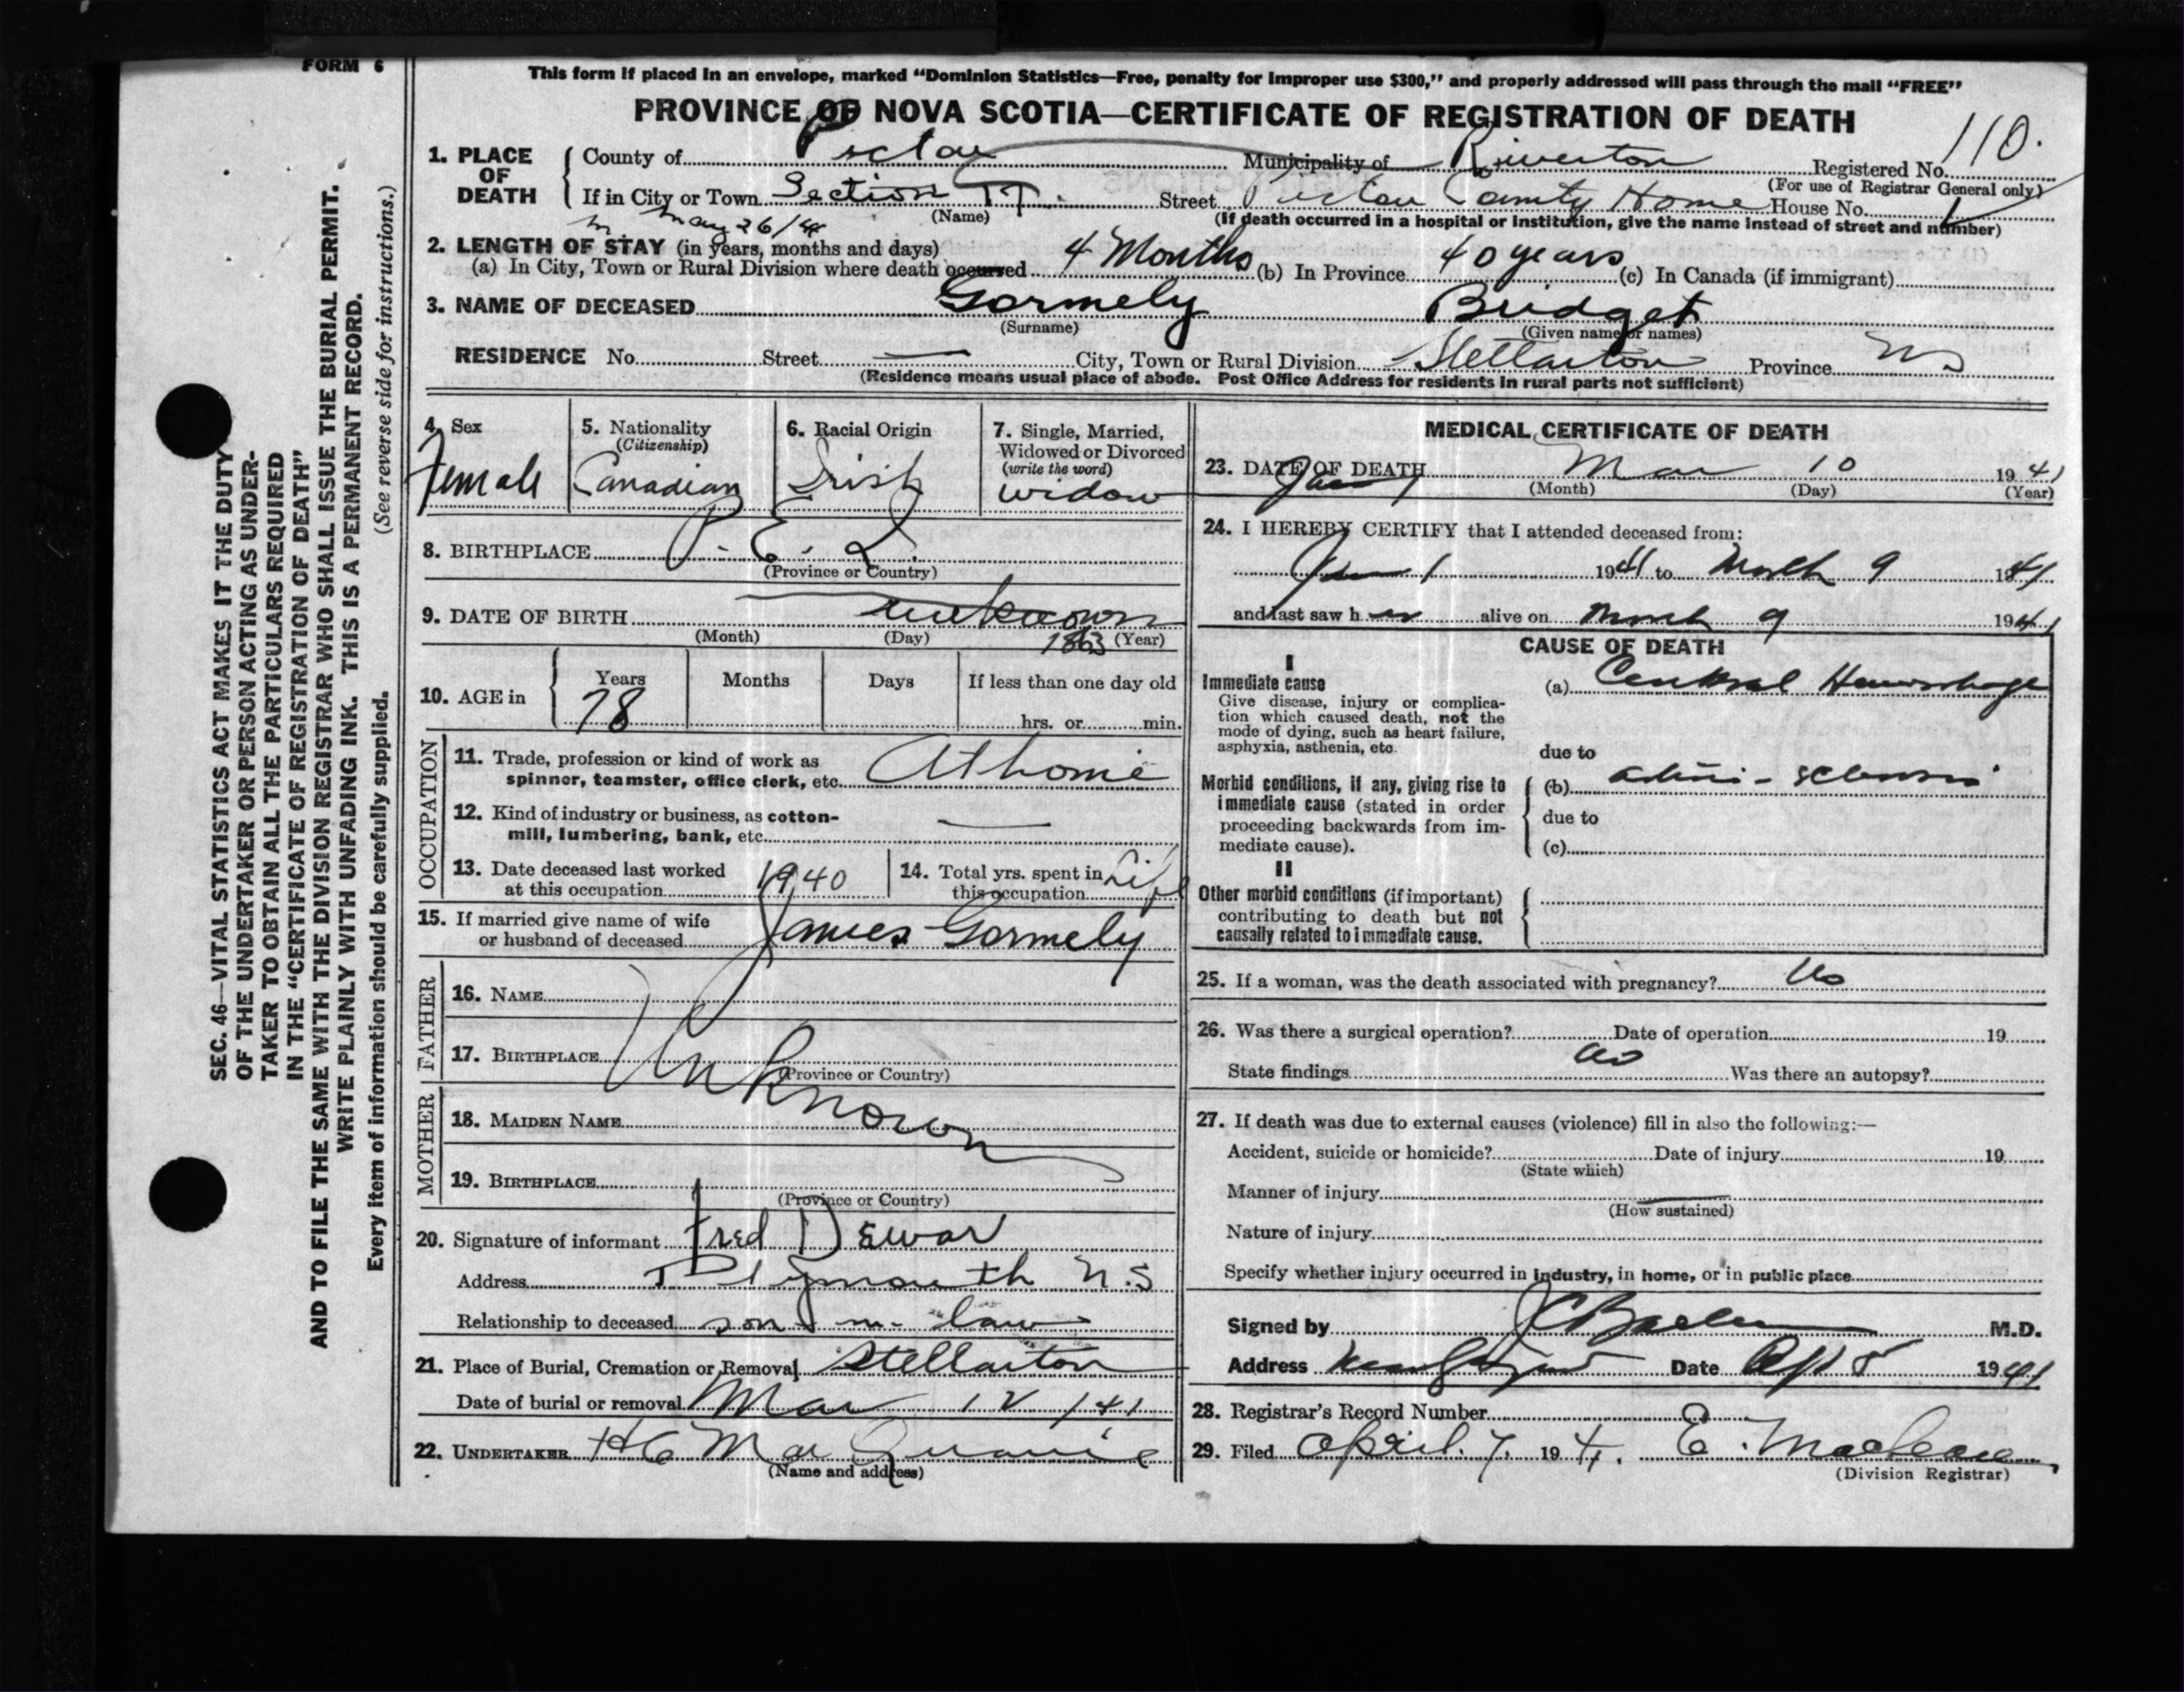 FORM 6
This form if placed in an envelope, marked “Dominion Statistics—Free, penalty for improper use $300,” and properly addressed will pass through the mail “FREE”
PROVINCE OF NOVA SCOTIA—CERTIFICATE OF REGISTRATION OF DEATH
1. PLACE OF DEATH
County of Pictou Municipality of Riverton Registered No. 110.
(For use of Registrar General only)
If in City or Town Section 17. Street Pictou County Home House No.
(Name) (If death occurred in a hospital or institution, give the name instead of street and number)
May 26/41
2. LENGTH OF STAY (in years, months and days)
(a) In City, Town or Rural Division where death occurred 4 Months (b) In Province 40 years (c) In Canada (if immigrant)
3. NAME OF DECEASED Gormely Bridget
(Surname) (Given name or names)
RESIDENCE No. Street — City, Town or Rural Division Stellarton Province NS
(Residence means usual place of abode. Post Office Address for residents in rural parts not sufficient)
4. Sex
Female
5. Nationality
(Citizenship)
Canadian
6. Racial Origin
Irish
7. Single, Married, Widowed or Divorced
(write the word)
widow
8. BIRTHPLACE P. E. I.
(Province or Country)
9. DATE OF BIRTH unknown
(Month) (Day) 1863 (Year)
10. AGE in Years Months Days If less than one day old
78 hrs. or min.
OCCUPATION
11. Trade, profession or kind of work as
spinner, teamster, office clerk, etc. At home
12. Kind of industry or business, as cotton-
mill, lumbering, bank, etc. —
13. Date deceased last worked
at this occupation 1940
14. Total yrs. spent in
this occupation Life
15. If married give name of wife
or husband of deceased James Gormely
FATHER
16. NAME
17. BIRTHPLACE Unknown
(Province or Country)
MOTHER
18. MAIDEN NAME
19. BIRTHPLACE
(Province or Country)
20. Signature of informant Fred Dewar
Address Plymouth N.S
Relationship to deceased son in law
21. Place of Burial, Cremation or Removal Stellarton
Date of burial or removal Mar 12 /41
22. UNDERTAKER
(Name and address)
MEDICAL CERTIFICATE OF DEATH
23. DATE OF DEATH Mar 10 1941
Jan 1 (Month) (Day) (Year)
24. I HEREBY CERTIFY that I attended deceased from:
Jan 1 1941 to March 9 1941
and last saw her alive on March 9 1941
CAUSE OF DEATH
I
Immediate cause
Give disease, injury or complica-
tion which caused death, not the
mode of dying, such as heart failure,
asphyxia, asthenia, etc.
(a) Cerebral Hemorrhage
due to
Morbid conditions, if any, giving rise to
immediate cause (stated in order
proceeding backwards from im-
mediate cause).
(b)
due to
(c)
II
Other morbid conditions (if important)
contributing to death but not
causally related to immediate cause.
25. If a woman, was the death associated with pregnancy? No
26. Was there a surgical operation? Date of operation 19
no
State findings Was there an autopsy?
27. If death was due to external causes (violence) fill in also the following:—
Accident, suicide or homicide? Date of injury 19
(State which)
Manner of injury
(How sustained)
Nature of injury
Specify whether injury occurred in industry, in home, or in public place
Signed by M.D.
Address Date Apl 5 1941
28. Registrar's Record Number
29. Filed April. 7. 1941. E. Maclean
(Division Registrar)
SEC. 46—VITAL STATISTICS ACT MAKES IT THE DUTY
OF THE UNDERTAKER OR PERSON ACTING AS UNDER-
TAKER TO OBTAIN ALL THE PARTICULARS REQUIRED
IN THE “CERTIFICATE OF REGISTRATION OF DEATH”
AND TO FILE THE SAME WITH THE DIVISION REGISTRAR WHO SHALL ISSUE THE BURIAL PERMIT.
WRITE PLAINLY WITH UNFADING INK. THIS IS A PERMANENT RECORD.
Every item of information should be carefully supplied. (See reverse side for instructions.)